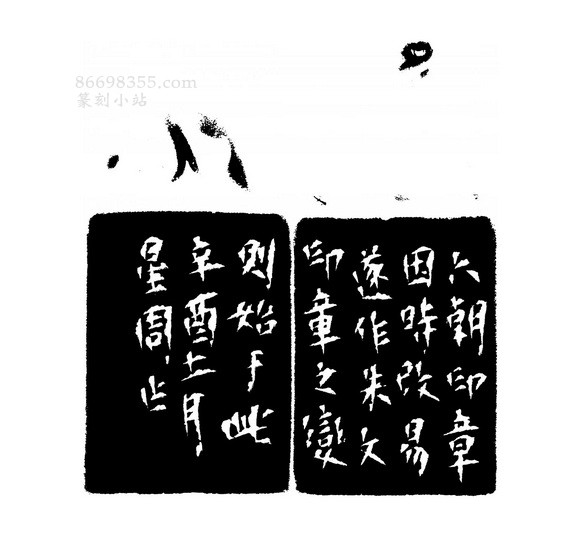 86698355.com
篆刻小站
六朝印章
因時改易
遂作朱文
印章之變
則始于此
辛酉七月
星周